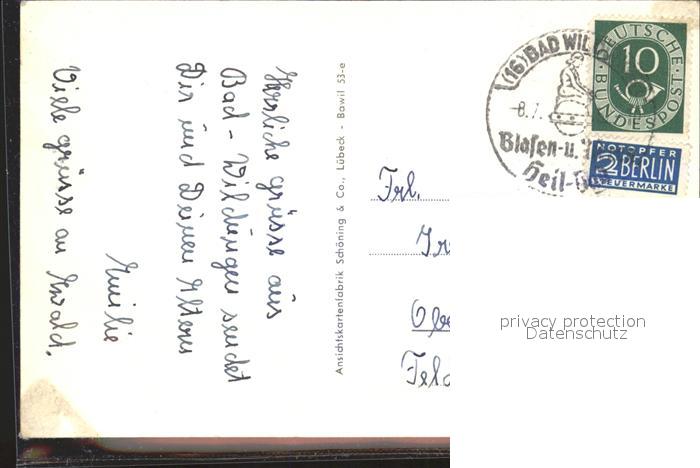 Herzliche Grüsse aus
Bad-Wildungen sendet
Dir und Deinen Eltern
Emilie
Viele grüsse an Ewald.
Ansichtskartenfabrik Schöning & Co., Lübeck - Bawil 53-e
(16) BAD WIL
-8.7.
Blasen-u.
Heil-
DEUTSCHE
BUNDESPOST
10
NOTOPFER
2 BERLIN
STEUERMARKE
Frl.
privacy protection
Datenschutz